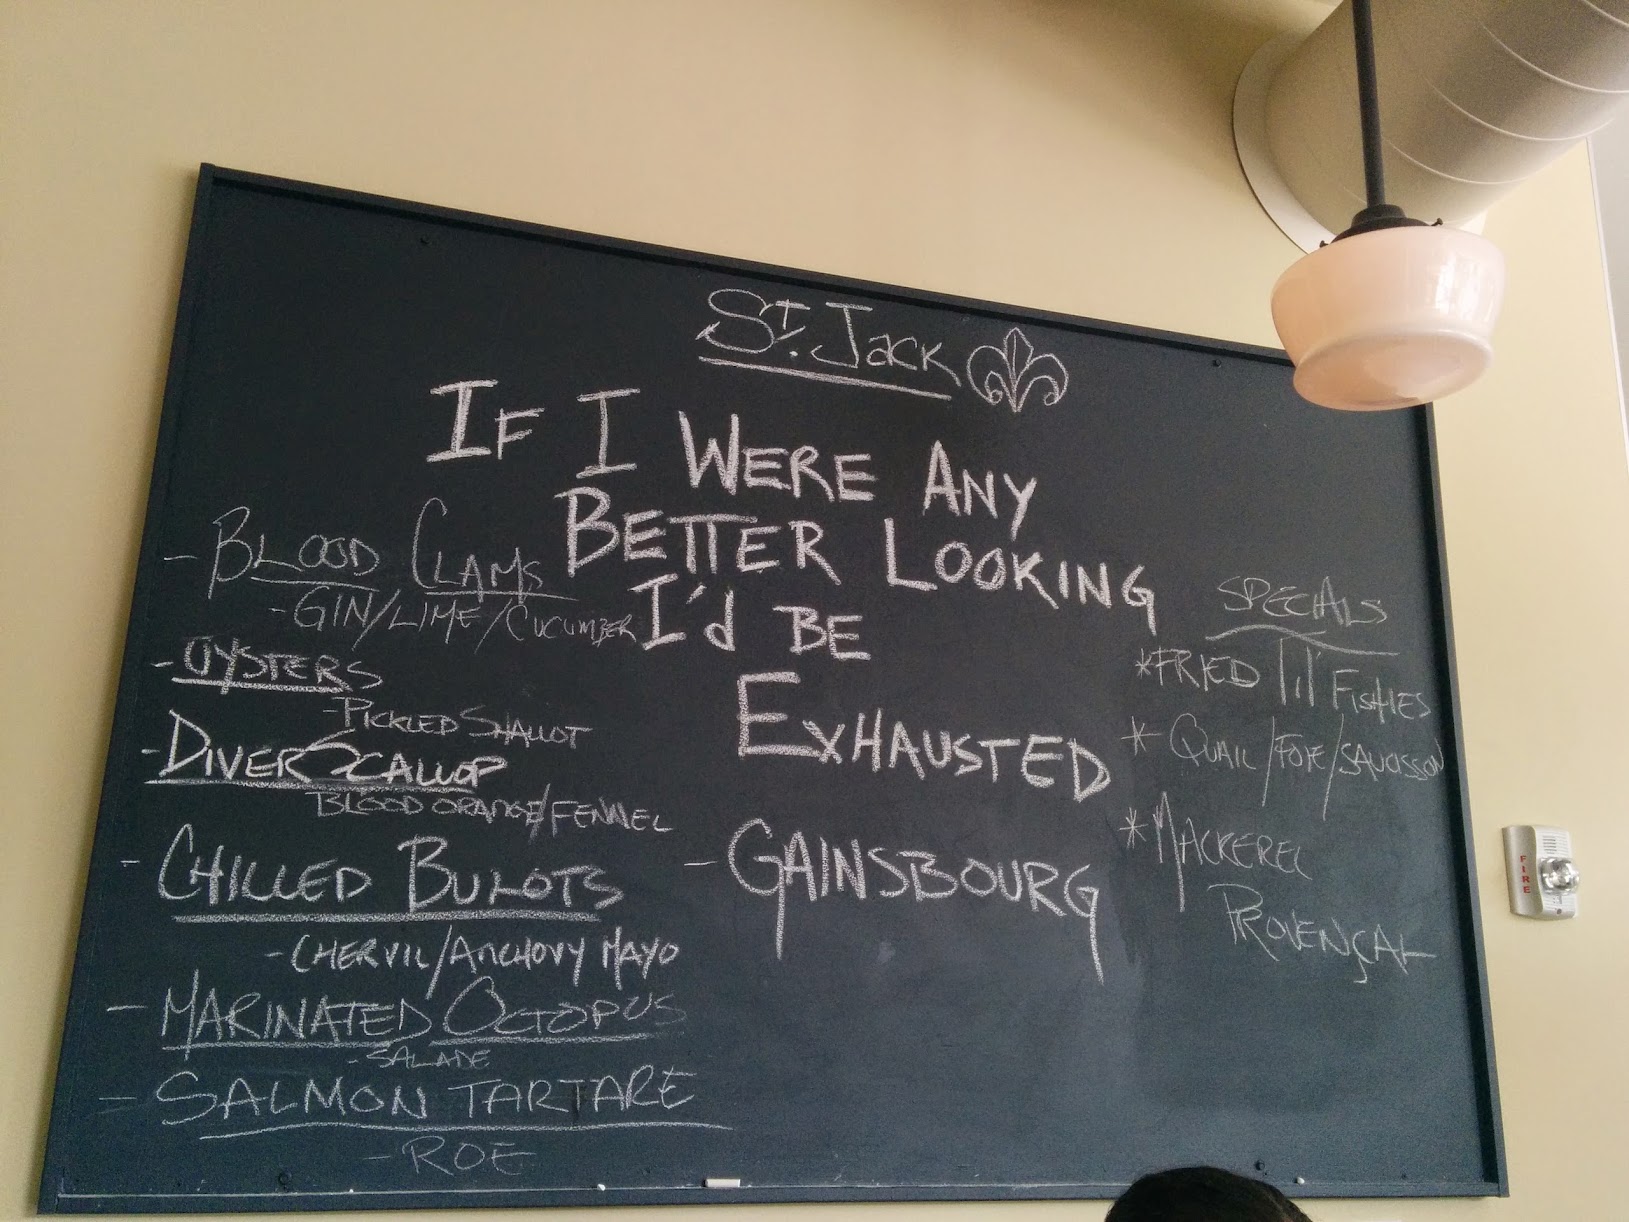 St. Jack
If I Were Any
Better Looking
I'd be
Exhausted
- Gainsbourg
- Blood Clams
- Gin/Lime/Cucumber
- Oysters
- Pickled Shallot
- Diver Scallop
Blood Orange/Fennel
- Chilled Bulots
- Chervil/Anchovy Mayo
- Marinated Octopus
- Salade
- Salmon Tartare
- Roe
Specials
*Fried Lil' Fishies
* Quail/Foie/Saucisson
* Mackerel
Provençal
FIRE